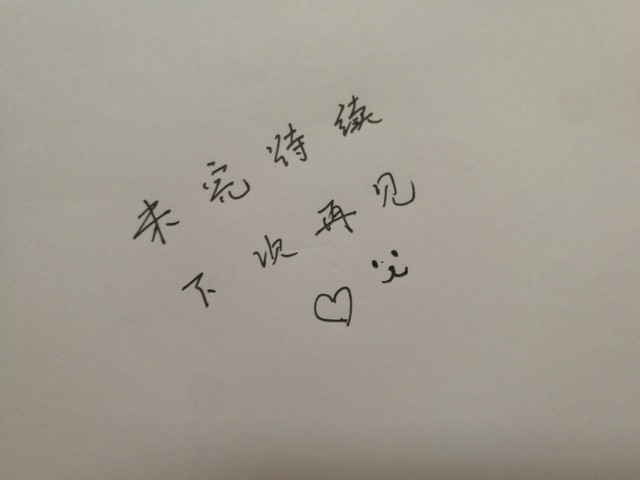 未完待续
下次再见